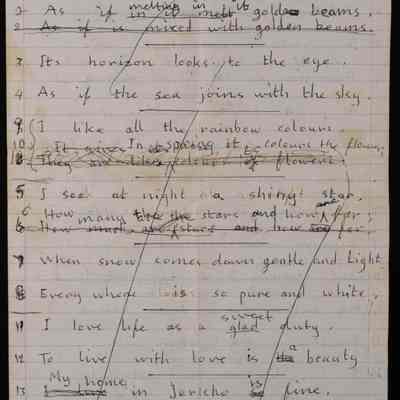 melting in it
1 As if in it melt golden beams.
2 As if is mixed with golden beams.
3 Its horizon looks to the eye.
4 As if the sea joins with the sky.
9 I like all the rainbow colours.
10 It gives In spring it colours the flowers
They are like colours to flowers.
5 I see at night a shiny star.
6 How many the stars and how far;
How much are stars and how far.
7 When snow comes down gentle and light
8 Every where is so pure and white.
sweet
11 I love life as a glad duty.
12 To live with love is the a beauty
My home is
13 in Jericho is fine.